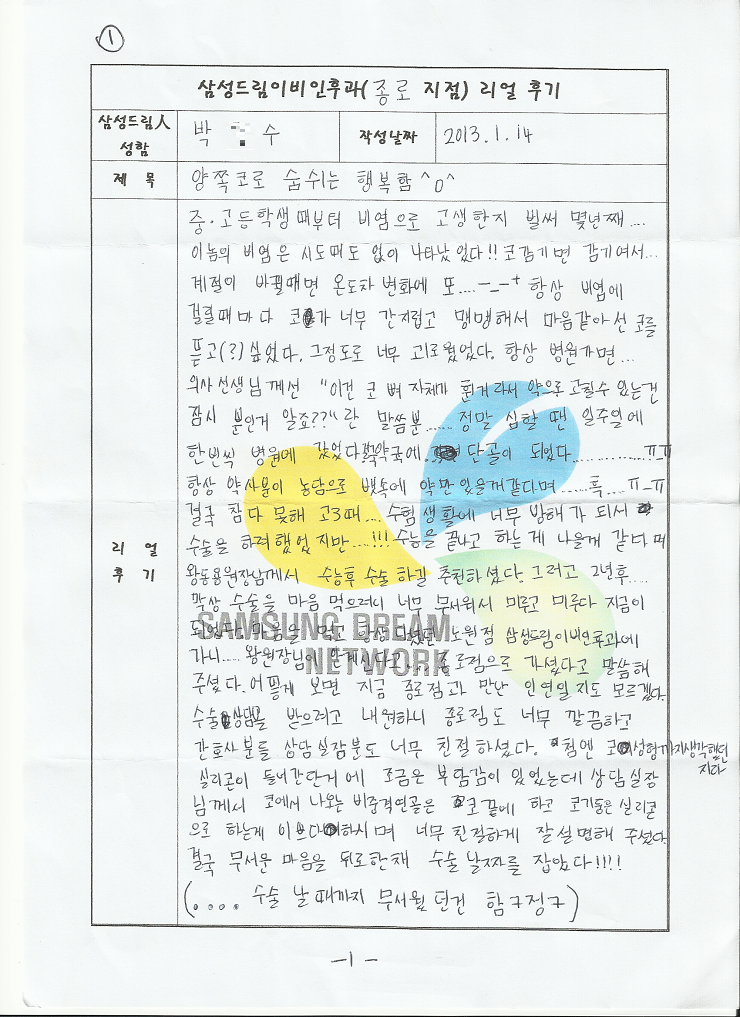 ①
삼성드림이비인후과(종로 지점) 리얼 후기
삼성드림人 성함
박 수
작성날짜
2013.1.14
제 목
양쪽코로 숨쉬는 행복함^0^
리 얼 후 기
중·고등학생때부터 비염으로 고생한지 벌써 몇년째....
이놈의 비염은 시도때도 없이 나타났었다!! 코감기면 감기여서...
계절이 바뀔때면 온도차 변화에 또....-_-+ 항상 비염에
걸릴때마다 코가 너무 간지럽고 맹맹해서 마음같아선 코를
뜯고(?)싶었다. 그정도로 너무 괴로웠었다. 항상 병원가면...
의사선생님께선 "이건 코 뼈 자체가 휜거라서 약으로 고칠수 있는건
잠시 뿐인거 알죠??"란 말씀뿐...... 정말 심할 땐 일주일에
한번씩 병원에 갔었다 약국에.. 단골이 되었다...............ㅠ_ㅠ
항상 약사분이 농담으로 뱃속에 약만있을꺼같다며......흑....ㅠ_ㅠ
결국 참다 못해 고3때.... 수험생활에 너무 방해가 되서
수술을 하려했었지만....!!! 수능을 끝나고 하는게 나을꺼 같다며
왕동용원장님께서 수능후 수술 하길 추천하셨다. 그러고 2년후....
막상 수술을 마음 먹으려니 너무 무서워서 미루고 미루다 지금이
되었다. 마음을 먹고 항상 다녔던 노원점 삼성드림이비인후과에
가니..... 왕원장님이 안계신다고.... 종로점으로 가셨다고 말씀해
주셨다. 어떻게 보면 지금 종로점과 만난 인연일지도 모르겠다.
수술상담을 받으려고 내원하니 종로점도 너무 깔끔하고
간호사분들 상담실장분도 너무 친절하셨다. 첨엔 코성형까지생각했던지라
실리콘이 들어간단거에 조금은 부담감이 있었는데 상담실장
님께서 코에서 나오는 비중격연골은 코끝에 하고 코기둥은 실리콘
으로 하는게 이쁘다하시며 너무 친절하게 잘설명해 주셨다.
결국 무서운 마음을 뒤로한채 수술 날짜를 잡았다!!!!
(.... 수술 날 때까지 무서웠던건 함구정구)
-1-
SAMSUNG DREAM
NETWORK